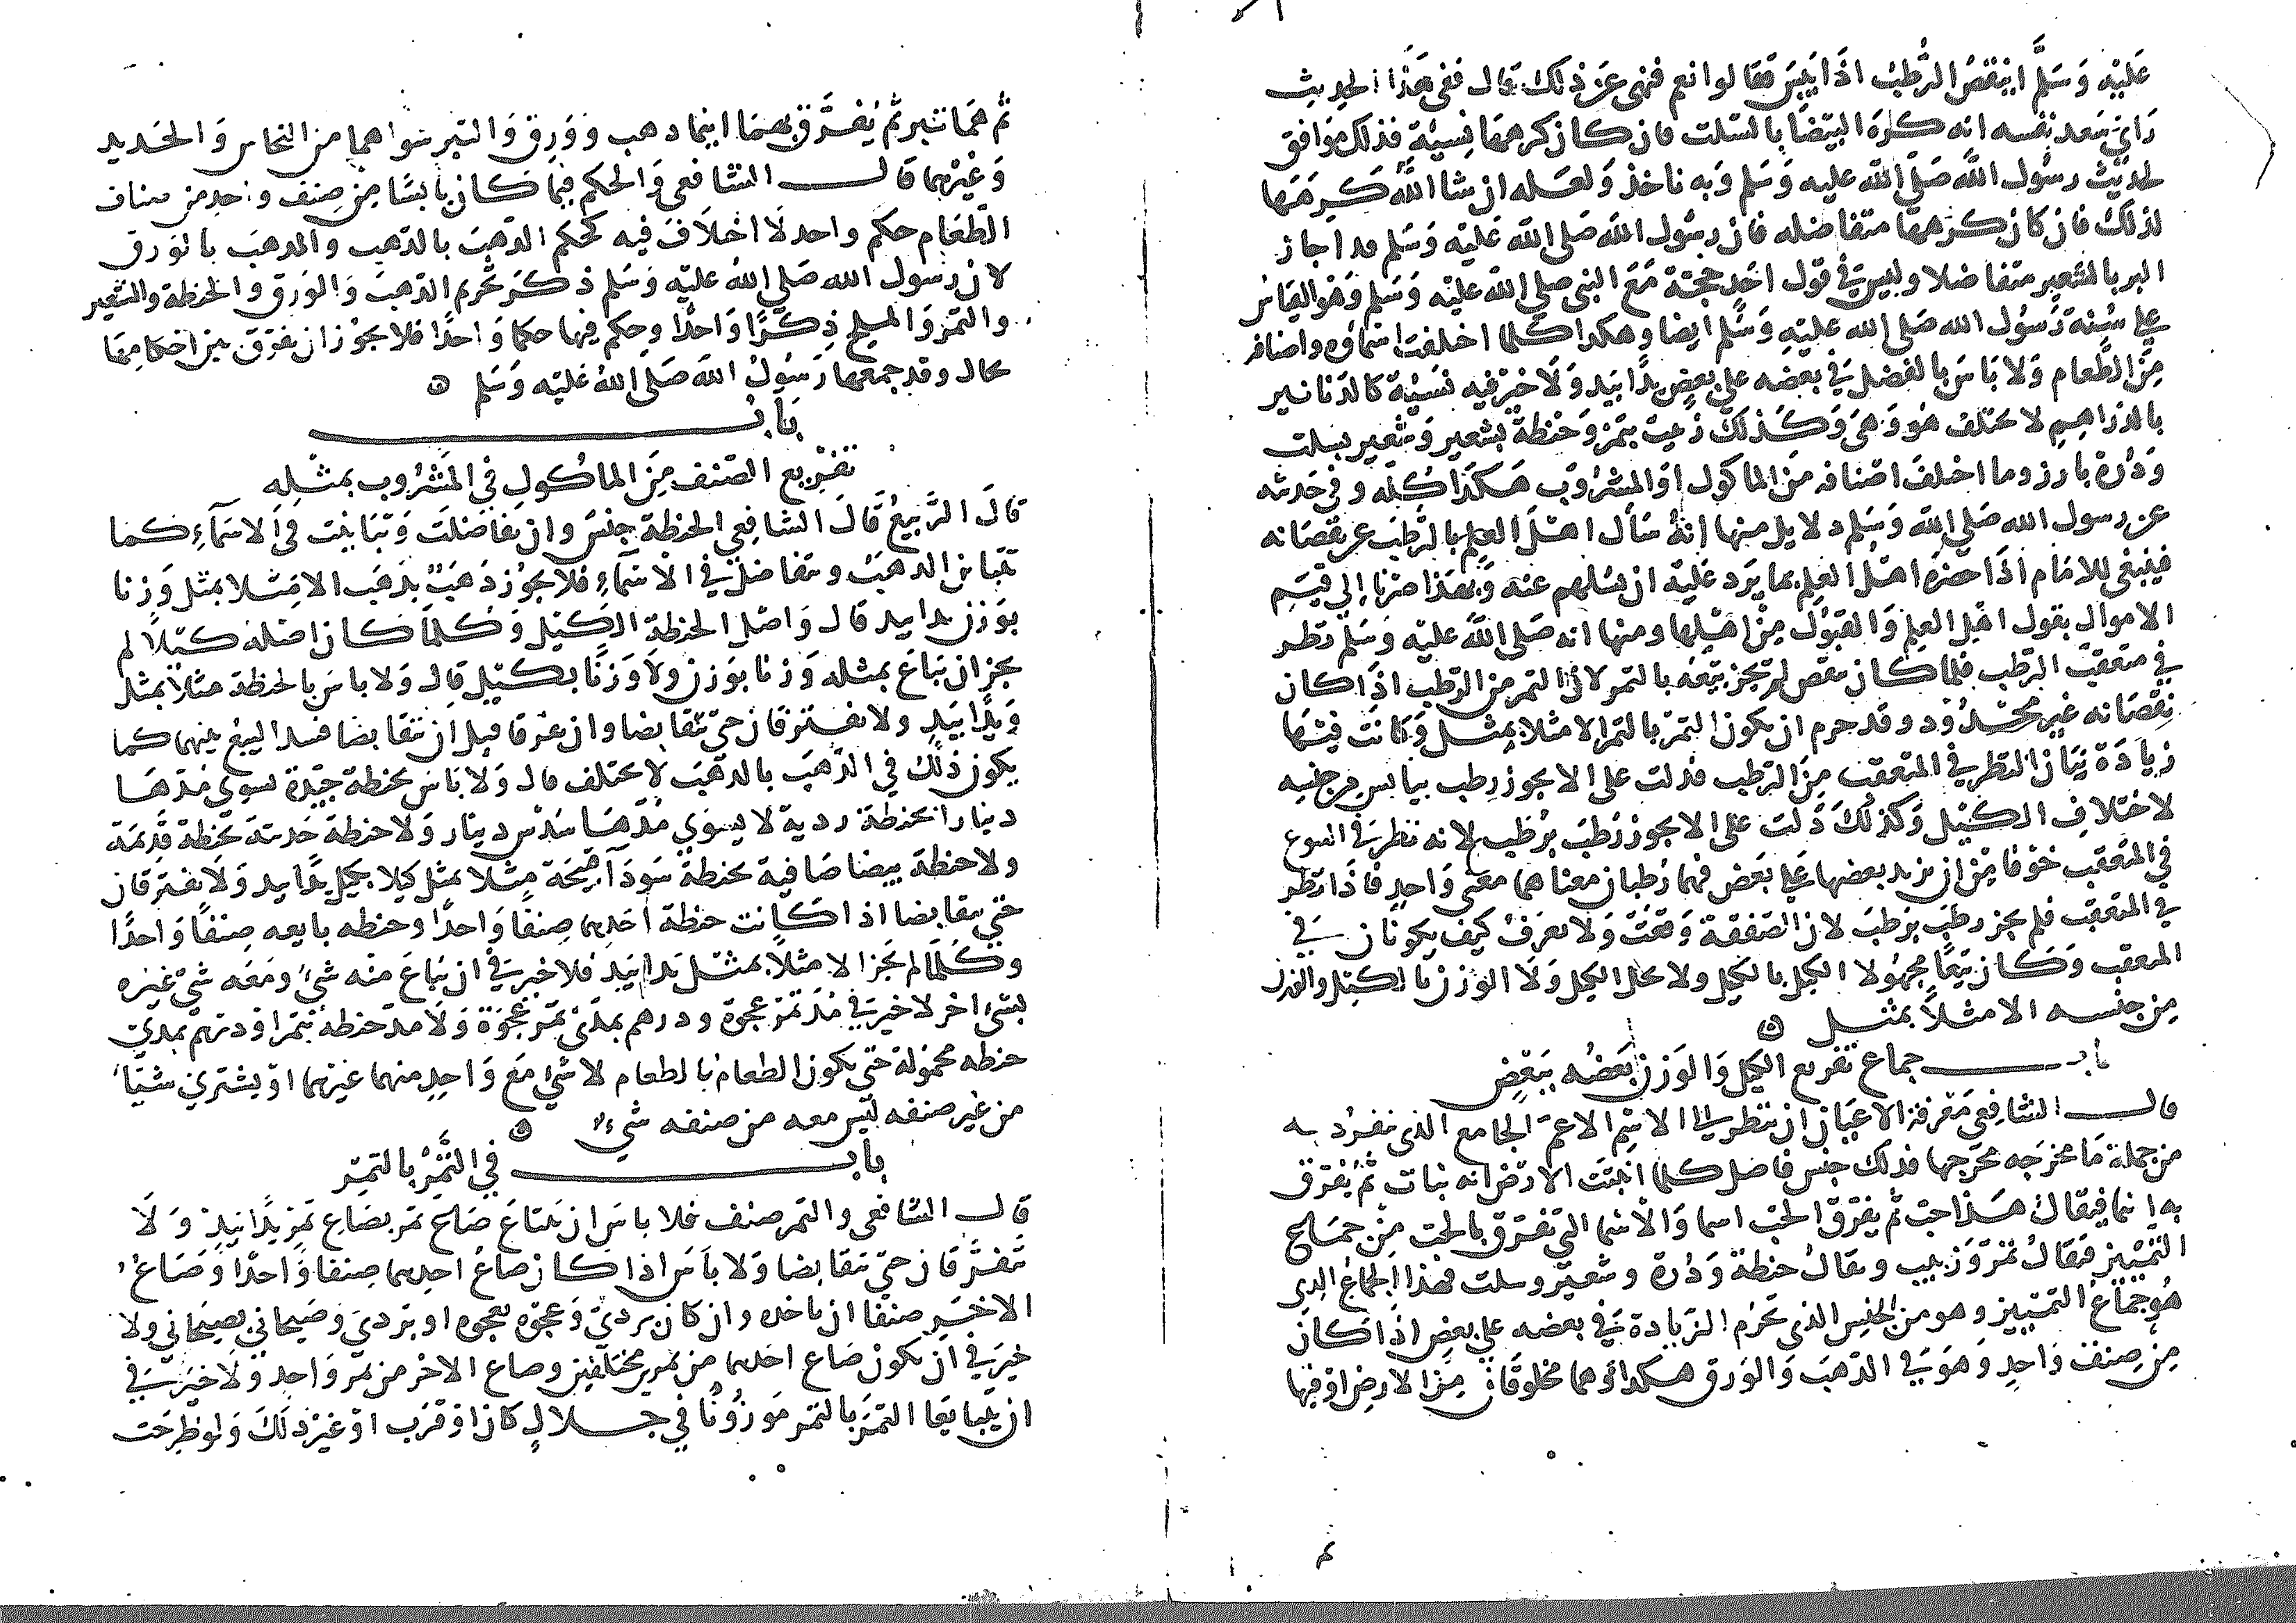 عَليْه وَسَلَّم اينقصُ الرُّطبُ اذَا يَبِسَ فقالوا نعم فنهى عَن ذلك قال ففى هَذا الحديث
رَايُ سَعد نفسه انه كرهَ البيضَا بالسّلت فان كان كرههَا نسيَةً فذلك موَافق
لحديث رسُول اللّه صَلى اللّه عليه وَسَلم وَبه ناخذ وَلعَله ان شا اللّه كَرِهَهَا
لذلك فان كان كرههَا متفاضله فان رسُول اللّه صَلى اللّه عَليْه وَسَلم قد اجاز
البر بالشعير متفاضلا وليسَ في قول احَدٍ حجّة مَعَ النبى صلى اللّه عليْه وَسَلم وَهوَ القياسُ
على سُنة رَسُول اللّه صَلى اللّه عليْهِ وَسَلم ايضا وهكذا كلما اختلفت اسماؤه واصنافه
مِنَ الطّعام وَلا باسَ بالفضل في بعضه على بعضٍ يدًا بيَد وَلا خيْر فيه نسيَّة كالدّنانير
بالدراهم لا يختلف هو وَهىَ وَكذلك زبيبٌ بتمر وَحنطة بشعير وَشعير بسلت
وَذُرة بارز وما اختلفَ اصْنافه مِنَ الماكول اوالمشروب هَكذا كلّه وفى حَديثه
عن رسول اللّه صَلى اللّه وَسَلم دلايل منها انهُ سَأل اهْلَ العِلم بالرّطب عن نقصَانه
فينبغى للامَام اذَا حضرَهُ اهلُ العلم بما يَرد عَليْه ان يسلهم عنه وَبهذا صرنا الى قيَمِ
الاموال بقول اهْل العلم وَالقبُول مِنْ اهْلها ومنها انه صَلى اللّه عليْه وَسَلم نظر
في متعقب الرّطب فلما كان ينقص لم يجز بيعَهُ بالتمر لانّ التمر من الرّطب اذا كان
نقصَانه غير محدُود وقد حرم ان يكون التمر بالتمر الا مثلا بمثل وَكانت فيهَا
زيَادَة بيَان النظر في المتعقب مِنَ الرّطب فدلت على الا يجوز رطب بيابس من جنسِه
لاختلافِ الكيْل وَكذلكَ دَلت على الا يجوز رُطب برُطب لانه نظر في البيوع
في المتَعقب خوفا مِنْ ان يزيد بعضها عَلى بعَض فهما رُطبان معناهما معنى وَاحد فاذا نظر
في المتعَقب فلم يجز رطب برَطبَ لان الصّفقة وَقعت وَلا يعرَف كيف يكونان في
المتعقب وَكان بيعًا مجهولا الكيل بالكيل ولا يحل الكيل وَلا الوَزن بالكيل والوزن
مِن جنسه الا مثلاً بمثل
باب جماع تفريع الكيل وَالوَزن بَعضُه ببَعْضٍ
قال الشافِعى مَعْرفة الاعيَان ان تنظر الى الاسْم الاعمّ الجامع الذى ينفرد به
من جملة مَا يخرجه مخرجها فذلك جنس فاصل كلما انبتَت الارْض انه نبات ثم يُفرّق
به اسما فيقال هَذا حب ثم يفرّق الحبّ اسما وَالاسما التى تفرّق بالحب مِنْ جماع
التمييز فيقالُ تمرٌ وَزبيب ويقالُ حنطةٌ وَذُرة وشعيرٌ وسلت فهذا الجماعُ الذى
هُو جماع التمييز وهو من الجنس الذى تحرُم الزّيادة في بعضه على بعض اذا كان
مِن صِنف وَاحدٍ وَهوَ في الذّهبَ وَالوَرق هكذا وهما مخلوقان مِنَ الارض اوْ فيها
ثم هَما تبر ثم يُفرَّق بهما اسما ذهب ووَرق وَالتبر سواهما من النحاس وَالحَديد
وَغيْرهما قال الشافعى وَالحكم فيما كان يابسًا مِنْ صِنف واحد من صناف
الطّعَام حكم واحد لا اختلاف فيه كحكم الذّهب بالذّهب والذهبَ بالوَرق
لان رَسُول اللّه صَلى اللّه عليْه وَسَلم ذكر تحريم الذّهبَ وَالوَرَق والحنطة والشعير
والتمر وَالملح ذِكرًا وَاحدًا وحكم فيها حكما وَاحدًا فلا يجُوز ان نفرّق بين احكامها
بحال وقد جمعها رَسُولُ اللّه صَلى اللّه عَليْه وَسَلم
بَابُ
تفْريع الصّنف مِنَ الماكولِ في المَشرُوب بمثله
قالَ الرَّبيعُ قَالَ الشافعى الحنطة جنسَ وان تفاضلَت وَتبايَنت في الاسمآءِ كما
تتبَاين الذهَبُ وتتفاضلُ في الاسَمآءِ فلا يجوُز ذهَبٌ بذهَب الا مِثلا بمثل وَزنا
بوَزن يدا بيد قال وَاصْل الحنطة الكيْل وَكلما كان اصْله كيْلاً لم
يجز ان يُباعَ بمثله وَزنا بوَزن ولا وَزنًا بكيْل قال وَلا باسَ بالحنطة مثلاً بمثل
وَيدًا بيَدٍ ولا يفترقان حتى يتقابضا وان تفرقا قبل ان يتقابضا فسد البيعُ بينهما كما
يكون ذلك في الذَّهَبِ بالذهَب لا يختلف قال وَلا بَاسَ بحنطة جيّدة يسوى مُدّهَا
دينارا بحنطة رديّة لا يسوَى مُدّهَا سُدْس دينار وَلا حنطة حَديثة بحنطة قديمَة
ولا حنطة بيضا صَافية بحنطة سَودَآ قبيحَة مثلا بمثل كيلا بكيل يدًا بيد وَلا يفترقان
حتى يتقابضا اذا كانت حنطة احَدهما صِنفًا وَاحدًا وحنطه بايعه صِنفًا وَاحدًا
وكلما لم يَجز الا مثلاً بمثل يَدا بيَد فلا خير في ان يُباعَ منه شئ ومَعَه شئ غيره
بشئ اخر لا خير في مُدّ تمر عجوَة ودرهم بمدّىْ تمر عجوَة وَلا مدّ حنطة بتمر اوْ درهم بمدّىْ
حنطه محموُلة حتى يكون الطعام بالطعام لا شئ مَعَ وَاحدٍ منهما غيرهما اوْ يشترى شيئا
من غير صنفه ليس معه من صنفه شئ
بابُ في التّمْرُ بالتمر
قال الشافعى والتمر صنف فلا باس ان يبتاعَ صَاعَ تمر بصَاع تمر يدًا بيَدٍ وَلا
يتفرَّقان حتى يتقابضا وَلا باسَ اذا كان صاعُ احدهما صنفا وَاحدًا وَصَاعُ
الاخر صنفًا ان ياخذه وان كان برديّ وَعجوَه بعجوه او بردىّ وَصيحانىّ بصيحانى ولا
خير في ان يكون صَاع احدهما من تمرين مختلفين وصاع الاخر من تمر وَاحد وَلا خير في
ان يتبايَعا التمرَ بالتمر مَوزُونًا في جلالٍ كان اوْ قرَب اوْ غيْرذلكَ وَلو طرحَت